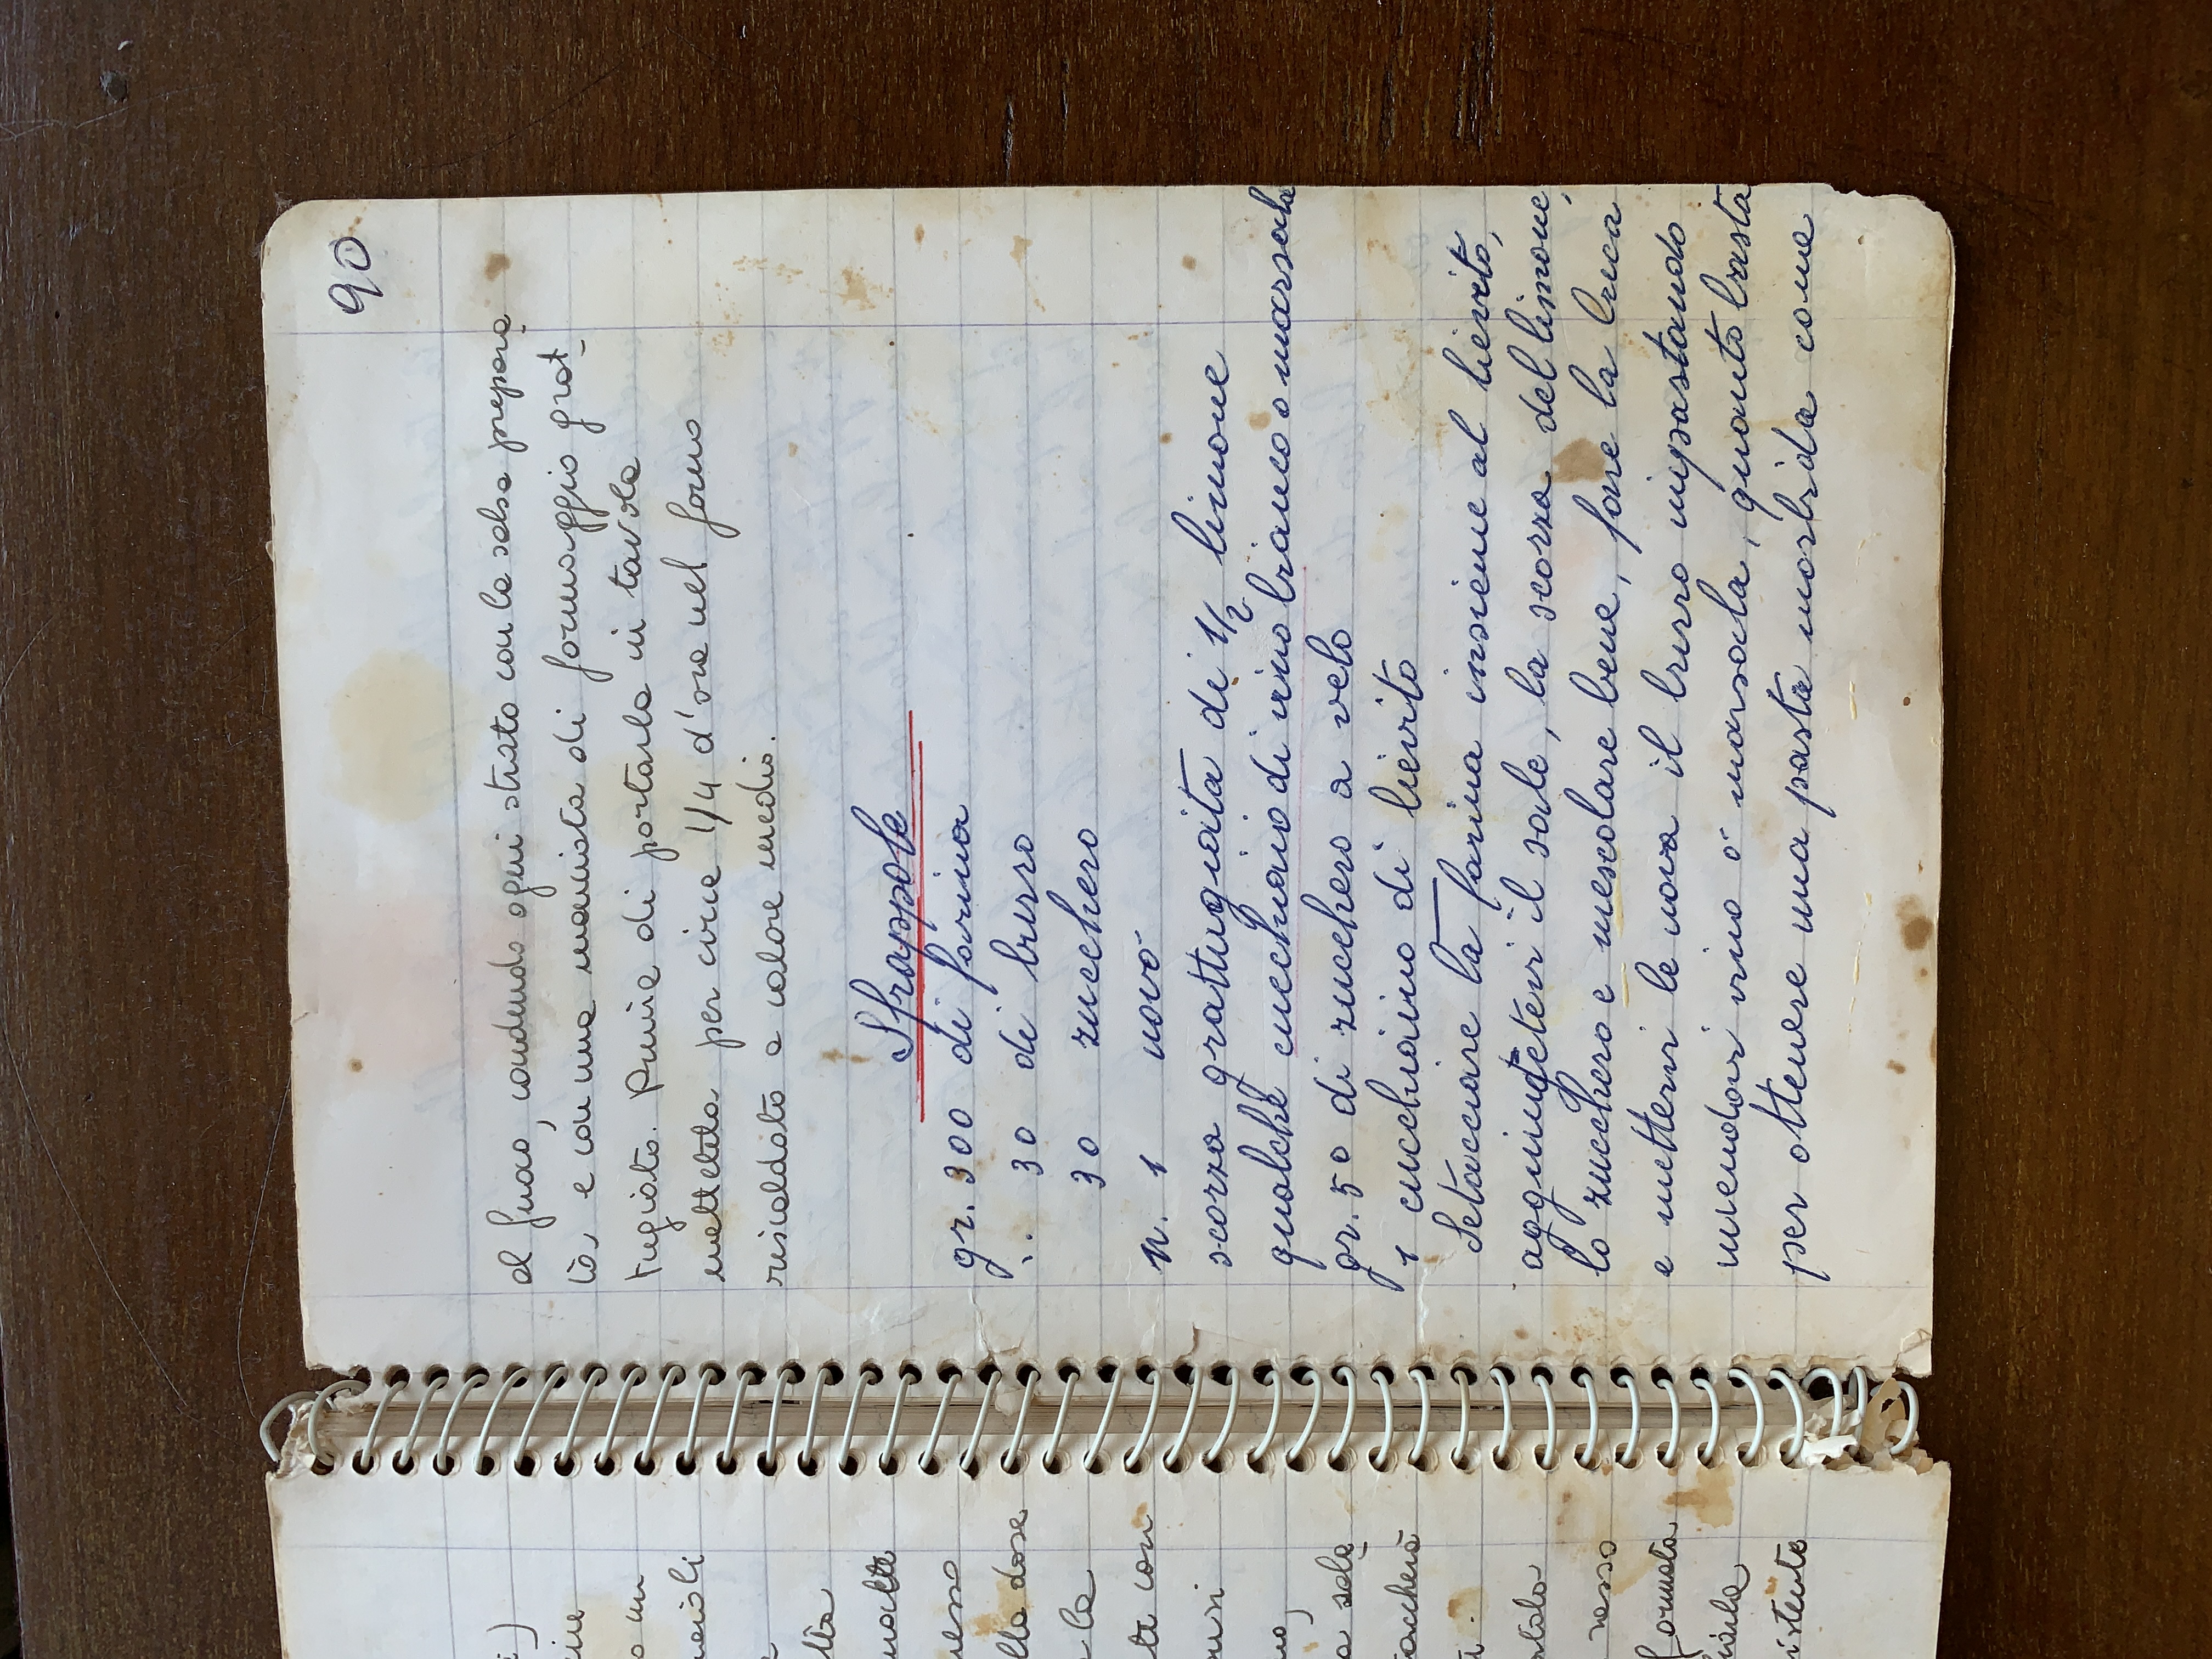 i)
o un
lla dose
la
te con
a sala
rosso
formata
istente
90
al fuoco, condendo ogni strato con la salsa prepara
ta, e con una manciata di formaggio grat_
tugiato. Prima di portarla in tavola
mettetela per circa 1/4 d'ora nel forno
riscaldato a calore medio.
Sfrappole
gr. 300 di farina
.. 30 di burro
30 zucchero
n. 1 uovo
scorza grattugiata di 1/2 limone
qualche cucchiaio di vino bianco o marsala
gr. 50 di zucchero a velo
1 cucchiaino di lievito
Setacciare la farina insieme al lievito,
aggiungetevi il sale, la scorza del limone,
lo zucchero e mescolare bene, fare la buca
e mettervi le uova il burro impastando
unendovi vino o marsala, quanto basta
per ottenere una pasta morbida come